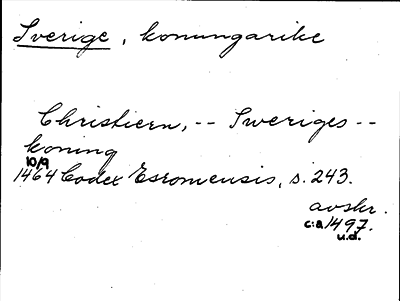 Sverige, konungarike
Christiern, -- Sweriges --
koning
10/9
1464 Codex Esromensis, s. 243.
avskr.
c:a 1497.
u.d.